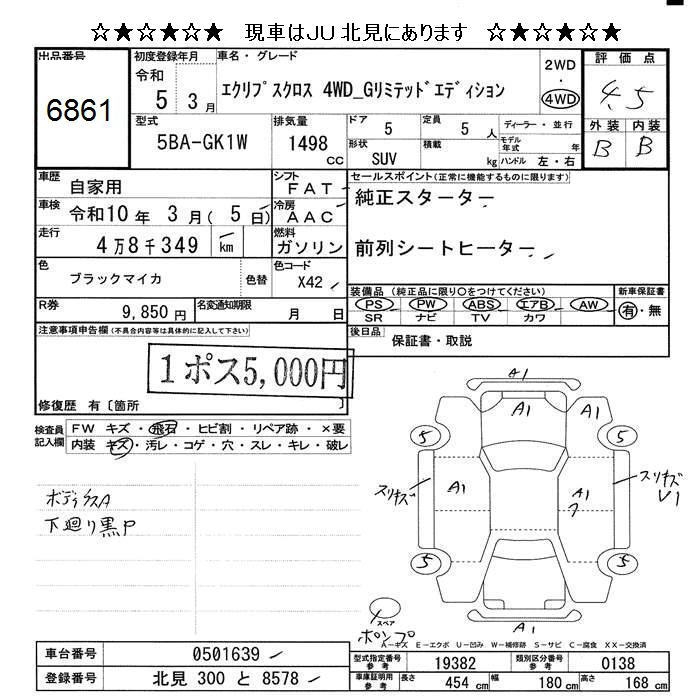 ☆★☆★☆★☆ 現車はJU北見にあります ☆★☆★☆★☆
出品番号 初度登録年月 車名・グレード 評価点
6861
令和 5年 3月
エクリプスクロス 4WD_Gリミテッドエディション
2WD ・ 4WD
4.5
型式 排気量 ドア 定員 ディーラー・並行 外装 内装
5BA-GK1W 1498 cc 5 5人 B B
形状 SUV 積載 kg モデル年式 年 ハンドル 左・右
車歴 自家用 シフト FAT
セールスポイント(正常に機能するものに限ります)
車検 令和10年 3月( 5日) 冷房 AAC
純正スターター
走行 4万8千349 km 燃料 ガソリン
前列シートヒーター
色 ブラックマイカ 色替 色コード X42
装備品(純正品に限り○をつけてください) 新車保証書
PS PW ABS エアB AW 有・無
SR ナビ TV カワ
R券 9,850円 名変通知期限 月 日
注意事項申告欄(不具合内容等は具体的に記入して下さい)
後日品 保証書・取説
1ポス5,000円
修復歴 有〔箇所 〕
検査員記入欄 FW キズ・飛石・ヒビ割・リペア跡・×要
内装 キズ・汚レ・コゲ・穴・スレ・キレ・破レ
ボディ
下廻り黒P
A1
A1 A1
5 5
スリキズ A1 A1 スリキズ V1
5 5
A1
スペア
ポンプ
A-キズ E-エクボ U-凹み W-補修跡 S-サビ C-腐食 XX-交換済
車台番号 0501639
型式指定番号 19382 類別区分番号 0138
登録番号 北見 300 と 8578
車庫証明用参考 長さ 454cm 幅 180cm 高さ 168cm